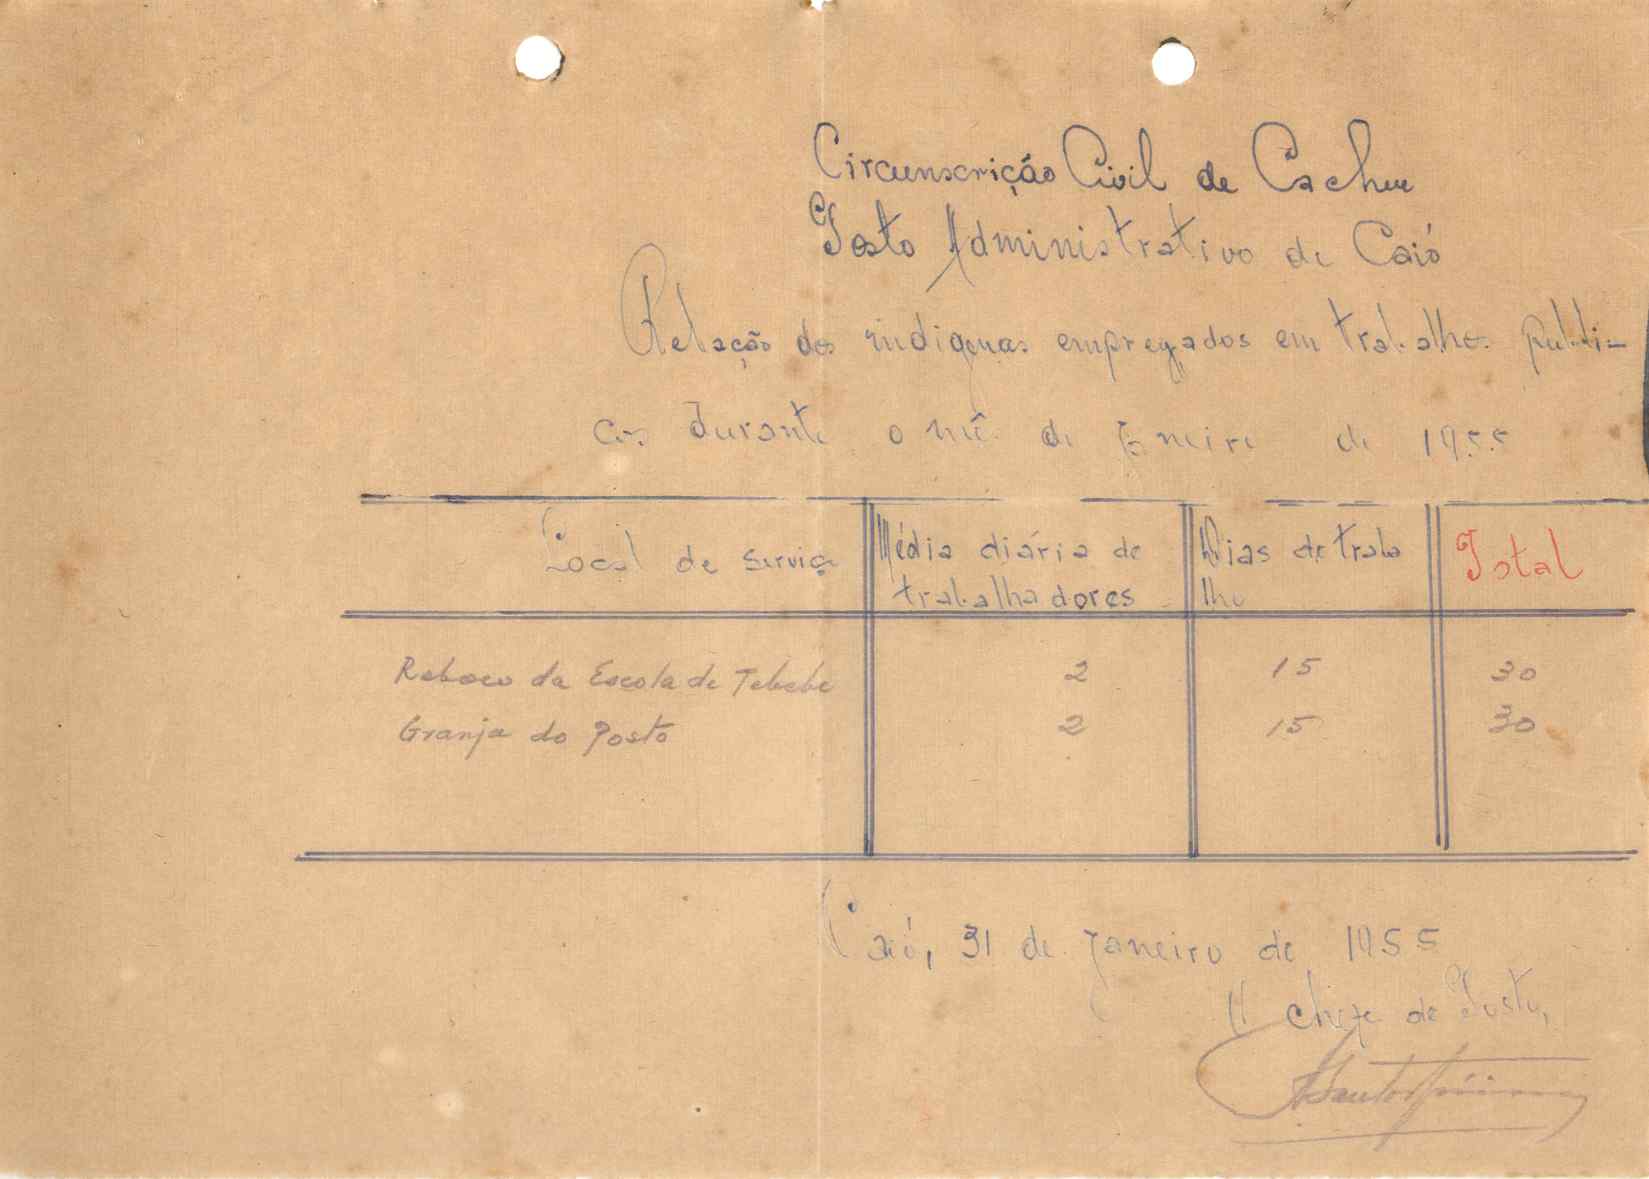 Circunscrição Civil de Cacheu
Posto Administrativo de Caió
Relação dos indigenas empregados em trabalhos publi-
cos durante o mês de Janeiro de 1955
Local de serviço
Média diária de
trabalhadores
Dias de traba
lho
Total
Reboco da Escola de Tebebe 2 15 30
Granja do Posto 2 15 30
Caió, 31 de Janeiro de 1955
O chefe de Posto,